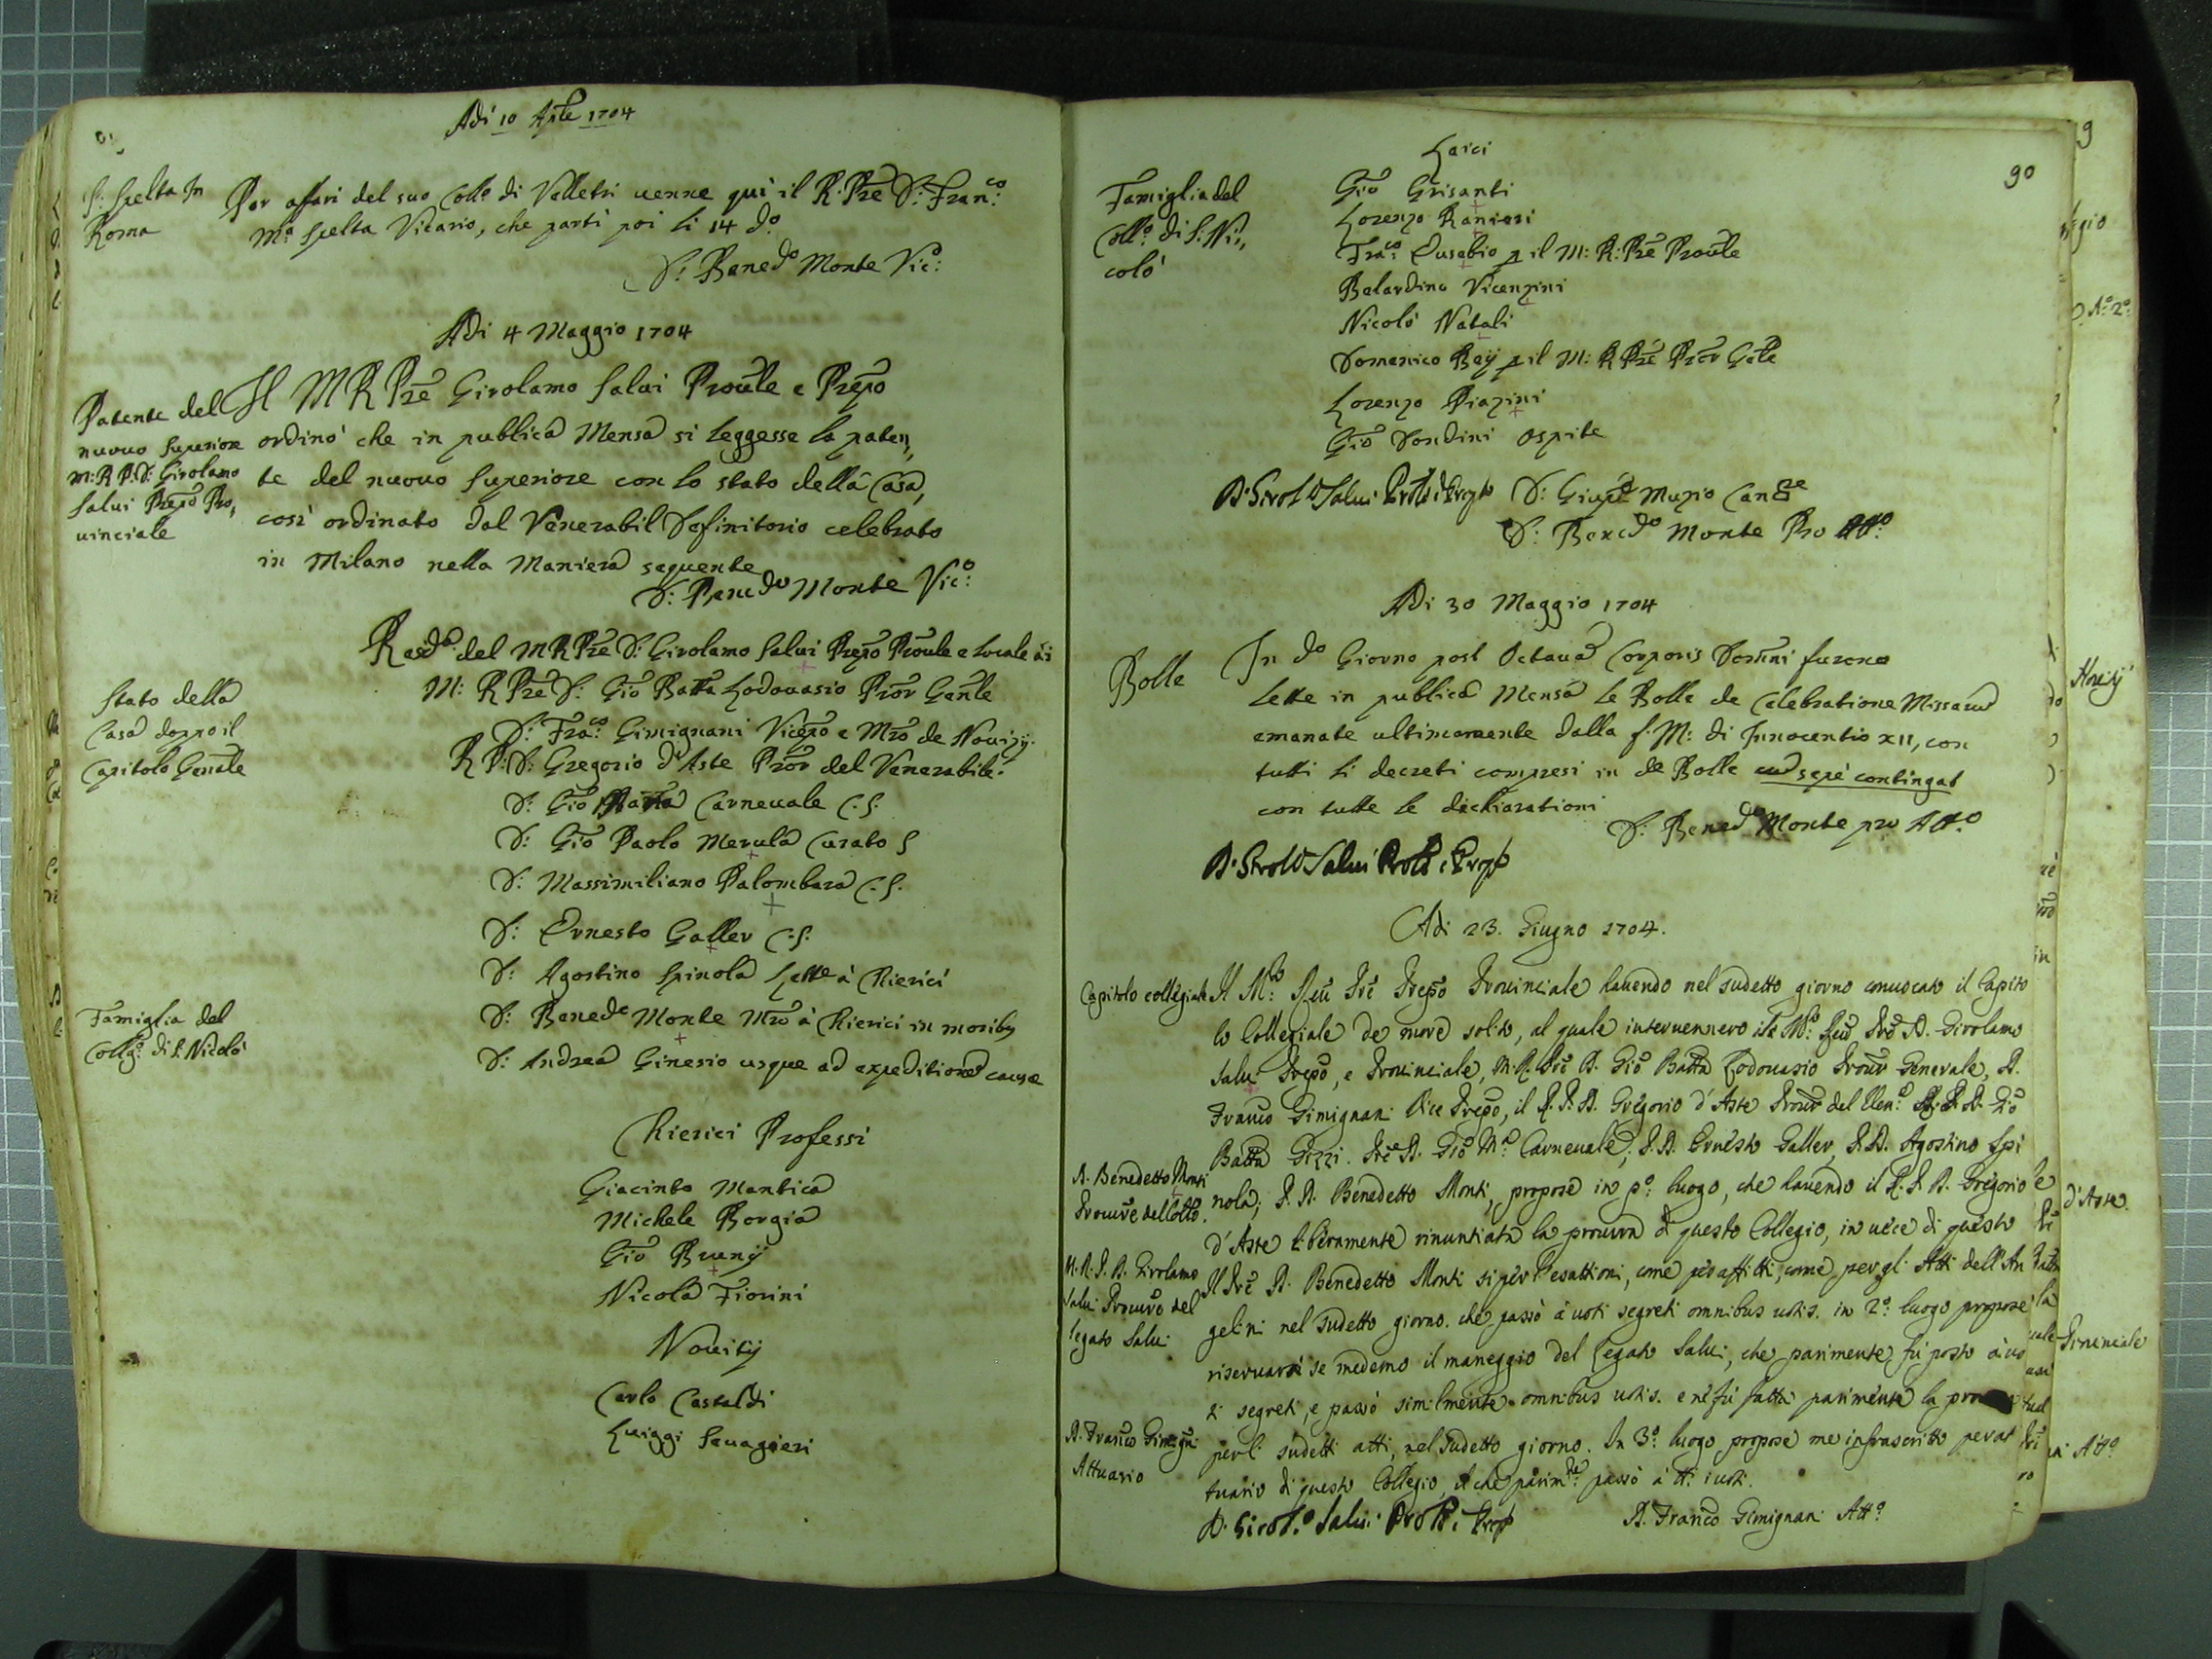 Adi 10 Aple 1704
P: Spelta in
Roma
Per affari del suo Collo: di Velletri uenne qui il R: Pre D: Franco:
Ma: Spelta Vicario, che partì poi li 14 do
D: Benedo Monte Vico:
Adi 4 Maggio 1704
Patente del
nuouo Superiore
M: R P. D: Girolamo
Salui Prepo Pro,
uinciale
Il M R Pre Girolamo Salui Proule e Prepo
ordinò che in publica Mensa si leggesse la paten,,
te del nuouo Superiore con lo stato della Casa,
così ordinato dal Venerabil Definitorio celebrato
in Milano nella Maniera seguente
D: Benedo Monte Vico:
del M R Pre D: Girolamo Salui Prepo Proule e locale
Stato della
Casa doppo il
Capitolo Genale
M: R Pre D: Gio Batta Lodouasio Pror Genle
D: Fraco: Gimignani Vicepo e Mro de Nouizij.
R P: D: Gregorio d'Aste Pror del Venerabile.
D: Gio Carneuale C: S:
D: Gio Paolo Merula Curato S
D: Massimiliano Palombara C: S:
D: Ernesto Galler C: S:
D: Agostino Spinola Lette à Chierici
Famiglia del
Collgo: di S. Nicolò
D: Benedo Monte Mro à Chierici in moribs
D: Andrea Ginesio usque ad expeditione causæ
Chierici Professi
Giacinto Mantica
Michele Borgia
Gio Brunij
Nicola Fiorini
Nouitij
Carlo Castaldi
Luiggi Sauagieri
90
Laici
Famiglia del
Collo: di S: Ni,,
colò
Gio Grisanti
Lorenzo Ranieri
Fraco: Eusebio p il M: R: Pre Proule
Belardino Vicenzini
Nicolò Natali
Domenico Bey p il M: R Pre Pror Gnle
Lorenzo Piazini
Gio Dondini Ospite
D. Girolo Salui Prole e Prepto
D: Giupe Muzio Cance
D: Benedo Monte Pro Atto:
Adi 30 Maggio 1704
Bolle
In do Giorno post Octaua Corporis Domini furono
lette in publica Mensa le Bolle de Celebratione Missarum
emanate ultimamente dalla f. M: di Innocentio XII, con
tutti li decreti compresi in de Bolle cum sepè contingat
con tutte le dichiarationi
D: Benedo Monte pro Atto
D. Girolo Salui Prole e Prepto
Adi 23. Giugno 1704.
Capitolo collegiale
Il Mto: Reu Pre Prepo Prouinciale hauendo nel sudetto giorno conuocato il Capito
lo Collegiale de more solito, al quale interuennero il Mto: Reu Pre D. Girolamo
Salui Prepo, e Prouinciale, M. R. Pre D. Gio Batta Lodouasio Procur Generale, D.
Franco Gimignani Vice Prepo, il R. P. D. Gregorio d'Aste Procur del Ven: R. P. D. Gio
Batta Gizzi. Pre D. Gio Ma Carneuale, P. D. Ernesto Galler, P. D. Agostino Spi
D. Benedetto Monti
Procure del Collo.
nola, P. D. Benedetto Monti, propose in po: luogo, che hauendo il R. P. D. Gregorio
d'Aste liberamente rinuntiata la procura di questo Collegio, in uece di questo
M. R. P. D. Girolamo
Salui Procure del
legato Salui
Il Pre D. Benedetto Monti si per l'esattioni, come per affitti, come per gl'Atti dell'An
gelini nel sudetto giorno. che passò à uoti segreti omnibus uotis. in 2o: luogo propose
riseruarsi se medemo il maneggio del Legato Salui, che parimente fù posto à uo
ti segreti, e passò similmente omnibus uotis. e ne fù fatta parimente la
D. Franco Gimigni
Attuario
per li sudetti atti, nel sudetto giorno. In 3o: luogo propose me infrascritto per at
tuario di questo Collegio, il che parimte: passò à tti i uoti.
D. Girolo Salui Prole e Prepto
D. Franco Gimignani Atto: